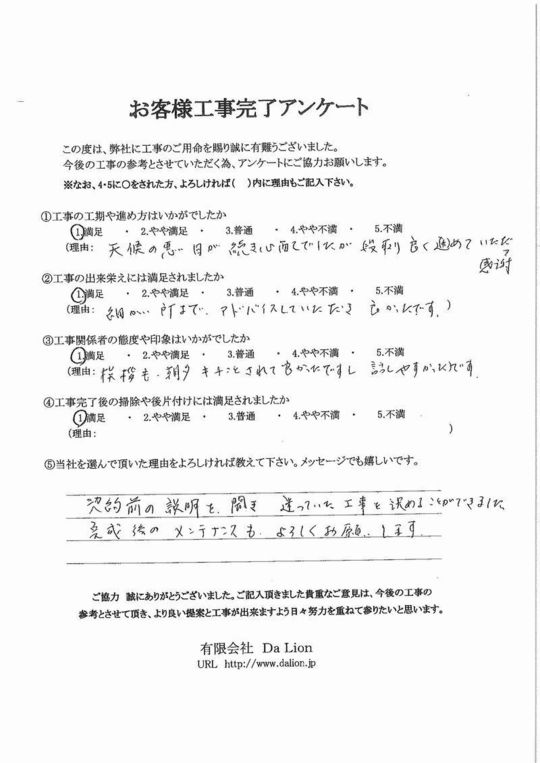 お客様工事完了アンケート
この度は、弊社に工事のご用命を賜り誠に有難うございました。
今後の工事の参考とさせていただく為、アンケートにご協力お願いします。
※なお、4・5に○をされた方、よろしければ(　)内に理由もご記入下さい。
①工事の工期や進め方はいかがでしたか
1.満足　・　2.やや満足　・　3.普通　・　4.やや不満　・　5.不満
(理由:　天候の悪い日が続き心配でしたが段取り良く進めていただ
感謝
②工事の出来栄えには満足されましたか
1.満足　・　2.やや満足　・　3.普通　・　4.やや不満　・　5.不満
(理由:　細かい所まで、アドバイスしていただき良かったです。)
③工事関係者の態度や印象はいかがでしたか
1.満足　・　2.やや満足　・　3.普通　・　4.やや不満　・　5.不満
(理由:　挨拶も、朝夕キチンとされて良かったですし話しやすかったです。
④工事完了後の掃除や後片付けには満足されましたか
1.満足　・　2.やや満足　・　3.普通　・　4.やや不満　・　5.不満
(理由:　)
⑤当社を選んで頂いた理由をよろしければ教えて下さい。メッセージでも嬉しいです。
契約前の説明を、聞き迷っていた工事を決めることができました
完成後のメンテナンスも、よろしくお願いします。
ご協力　誠にありがとうございました。ご記入頂きました貴重なご意見は、今後の工事の
参考とさせて頂き、より良い提案と工事が出来ますよう日々努力を重ねて参りたいと思います。
有限会社　Da Lion
URL　http://www.dalion.jp